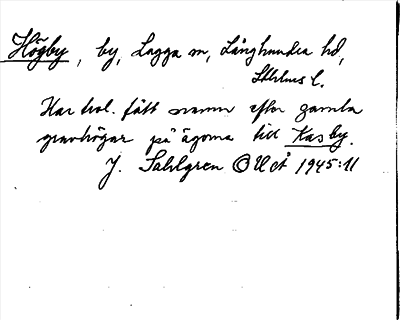 Högby, by, Lagga sn, Långhundra hd,
Sthlms l.
Har trol. fått namn efter gamla
gravhögar på ägorna till Kasby.
J. Sahlgren © UoÅ 1945:11